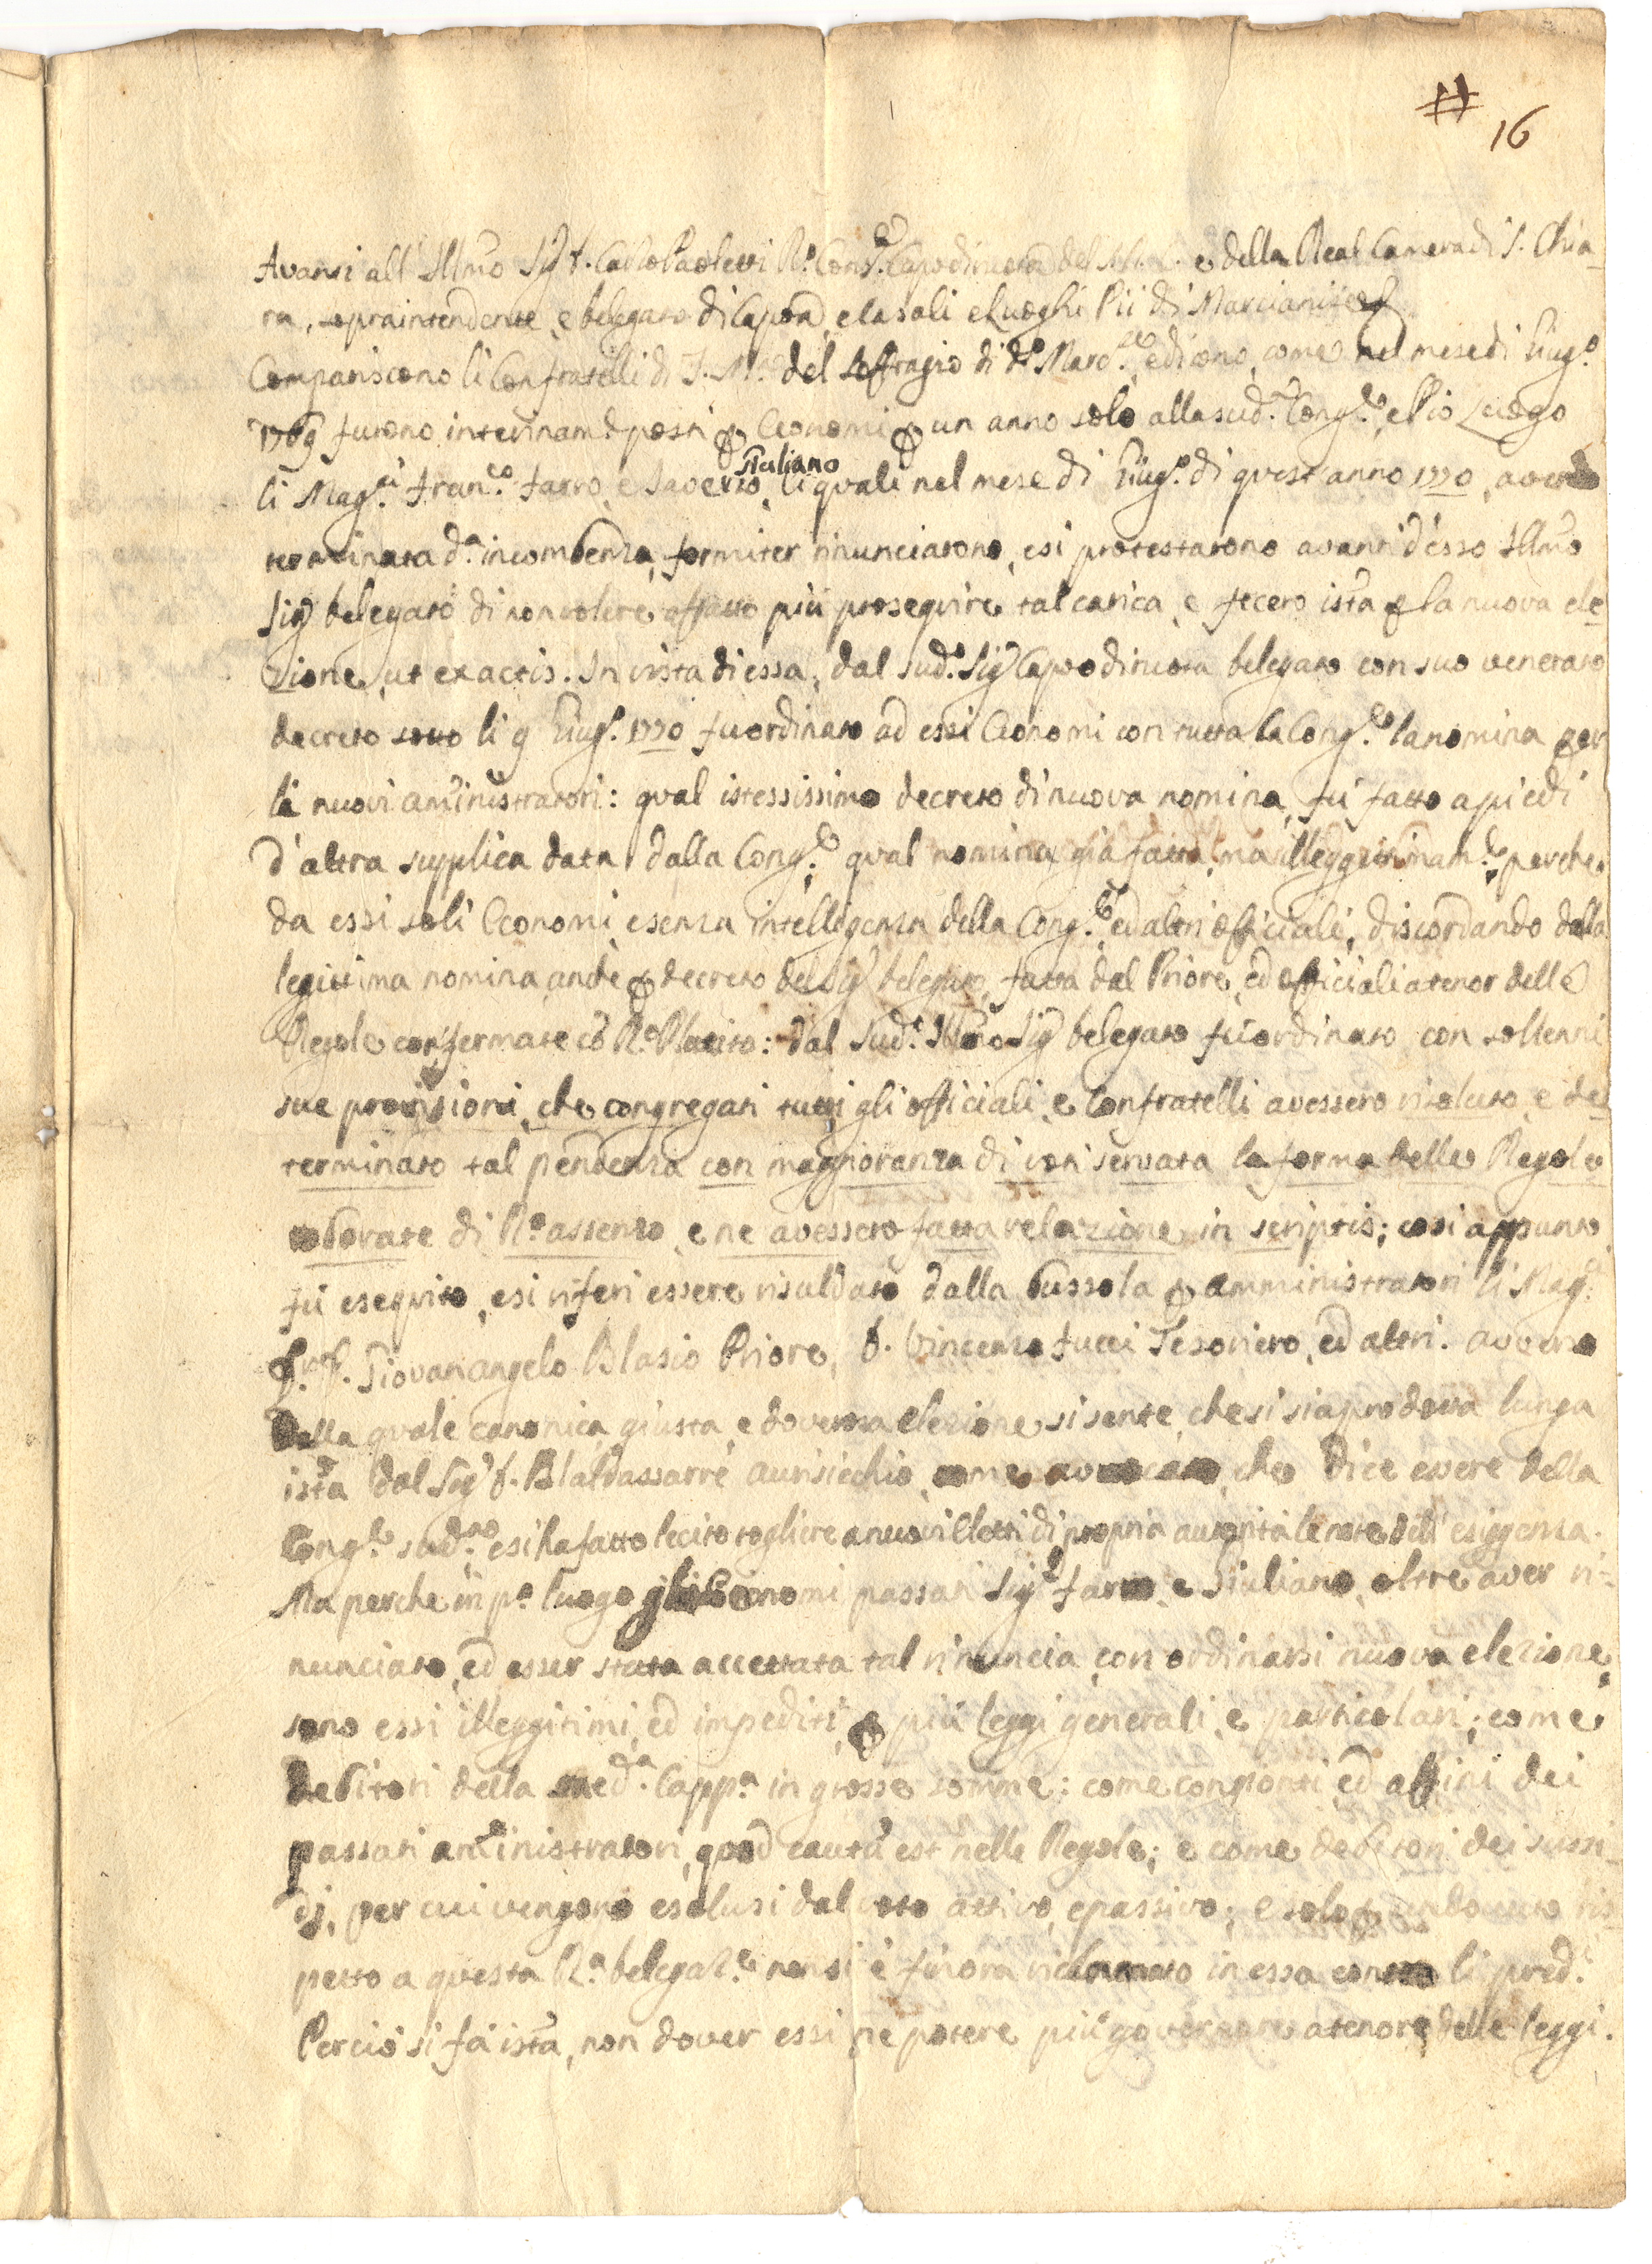 #
16
Avansi all' Illmo Sig.r D. Carlo Paoletti R.o Cons.re Capodiruota del S. R. C. e della Real Camera di S. Chia-
ra, sopraintendente, e Delegato di Capoa, e Casali e Luoghi Pii di Marcianise
Compariscono li Confratelli di S. M.a del Soffragio di d.o Marc.se, e dicono, come nel mese di Giug.o
1769 furono interinam.e posti p Economi p un anno solo alla sud.a Cong.ne, e Pio Luogo
li Mag.ci Fran.co Farro, e Saverio Giuliano, li quali nel mese di Giug.o di quest'anno 1770, avendo
terminata d.a incombenza, formiter rinunciarono, e si protestarono avanti d'esso Illmo
Sig.r Delegato di non volere affatto più proseguire tal carica, e fecero ista p la nuova ele
zione, ut ex actis. In vista di essa, dal sud.o Sig.r Capodiruota Delegato con suo venerato
decreto sotto li 9 Giug.o 1770 fu ordinato ad essi Economi con tutta la Cong.ne la nomina per
li nuovi aministratori: qual istessissimo decreto di nuova nomina, fù fatto a piedi
d'altra supplica data dalla Cong.ne; qual nomina già fatta, ma illeggitimam.te, perche
da essi soli Economi, e senza intelligenza della Cong.ne, ed altri officiali, discordando dalla
legittima nomina, anche p decreto del Sig.r Delegato, fatta dal Priore, ed officiali a tenor delle
Regole confermate cō R.o Placito: dal sud.o Illmo Sig.r Delegato fù ordinato con sollenni
sue provisioni, che congregati tutti gli officiali, e Confratelli avessero risoluto, e de
terminato tal pendenza con maggioranza di voti servata la forma delle Regole
roborate di R.o assenzo, e ne avessero fatta relazione in scriptis; così appunto
fù eseguito, e si riferì essere risuldato dalla bussola p amministratori li Mag.ci
D.r F. Giovanangelo Blasio Priore, D. Vincenzo Fucci Tesoriero, ed altri. Avverso
della quale canonica, giusta, e doverosa elezione, si sente, che si sia prodotta lunga
ista dal Sig.r D. Baldassarre Aurisicchio, come avvocato, che dice essere della
Cong.ne sud.a, e si ha fatto lecito togliere a nuovi Eletti di propria autorità le note dell'esiggenza.
Ma perche in p.o luogo gli Economi passati Sig.ri Farro, e Giuliano, oltre aver ri-
nunciato, ed esser stata accettata tal rinuncia, con ordinarsi nuova elezione,
sono essi illeggitimi, ed impediti, p più leggi generali, e particolari; come
debitori della med.a Capp.a in grosse somme: come congionti, ed affini dei
passati aministratori, quod cautū est nelle Regole; e come debitori dei sussi-
dj, per cui vengono esclusi dal voto attivo, e passivo; e solo p un dovuto ris
petto a questa R.a Delegaz.e non si è finora reclamato in essa contro li pred.i
Perciò si fà ista, non dover essi, nè potere più governare a tenore delle leggi.